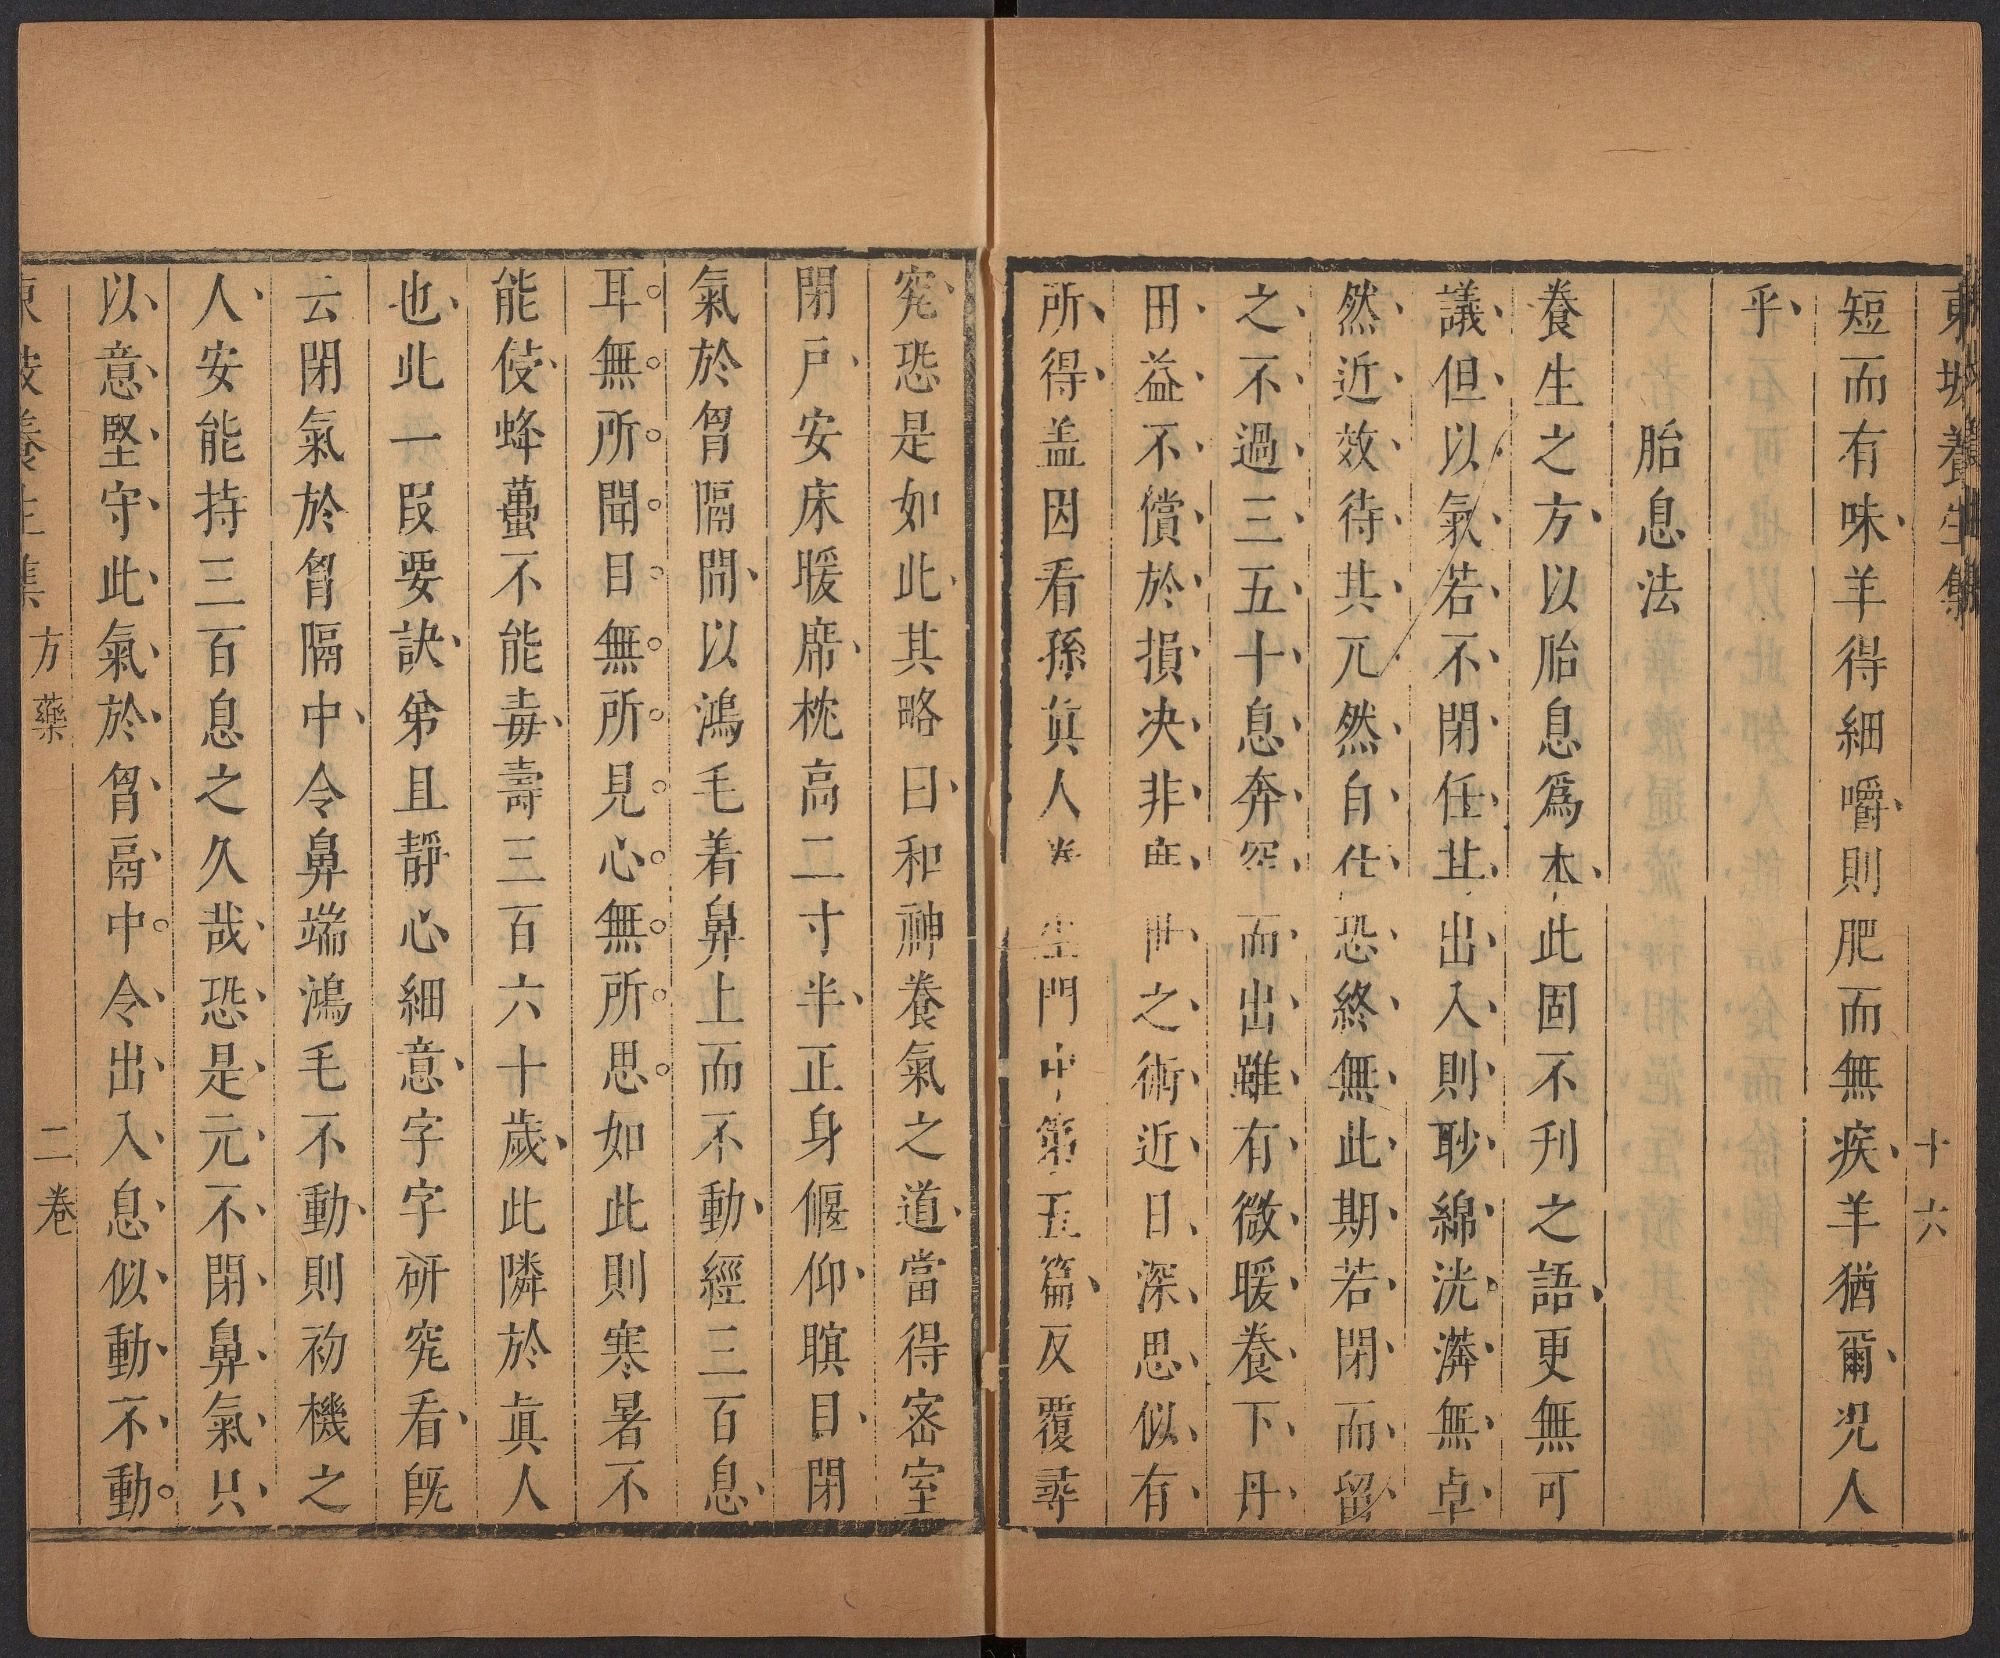 東坡養生集
十六
短而有味羊得細嚼則肥而無疾羊猶爾况人
乎
胎息法
養生之方以胎息爲本此固不刊之語更無可
議但以氣若不閉任其出入則眇綿洸漭無卓
然近效待其兀然自住恐終無此期若閉而留
之不過三五十息奔突而出雖有微暖養下丹
田益不償於損决非度世之術近日深思似有
所得盖因看孫眞人養生門中第五篇反覆尋
究恐是如此其略曰和神養氣之道當得宻室
閉戸安床暖席枕高二寸半正身偃仰瞑目閉
氣於胷隔間以鴻毛着鼻上而不動經三百息
耳無所聞目無所見心無所思如此則寒暑不
能侵蜂蠆不能毒壽三百六十歲此隣於眞人
也此一段要訣弟且靜心細意字字研究看旣
云閉氣於胷隔中令鼻端鴻毛不動則初機之
人安能持三百息之久哉恐是元不閉鼻氣只
以意堅守此氣於胷鬲中令出入息似動不動
東坡養生集 方藥 二卷